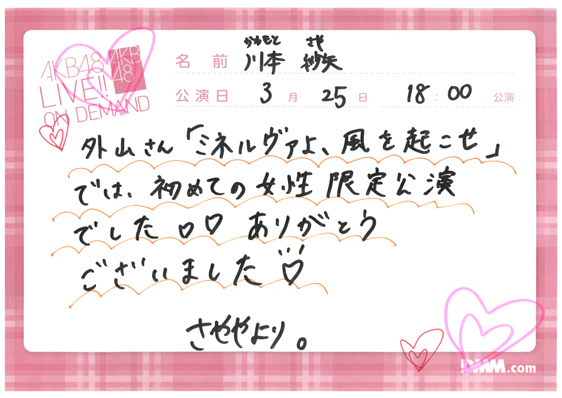 AKB48
LIVE!!
ON DEMAND
AKB
48
かわもと さや
名前 川本 紗矢
公演日 3月25日 18:00 公演
外山さん「ミネルヴァよ、風を起こせ」
では、初めての女性限定公演
でした♡♡ ありがとう
ございました♡
さややより。
DMM.com